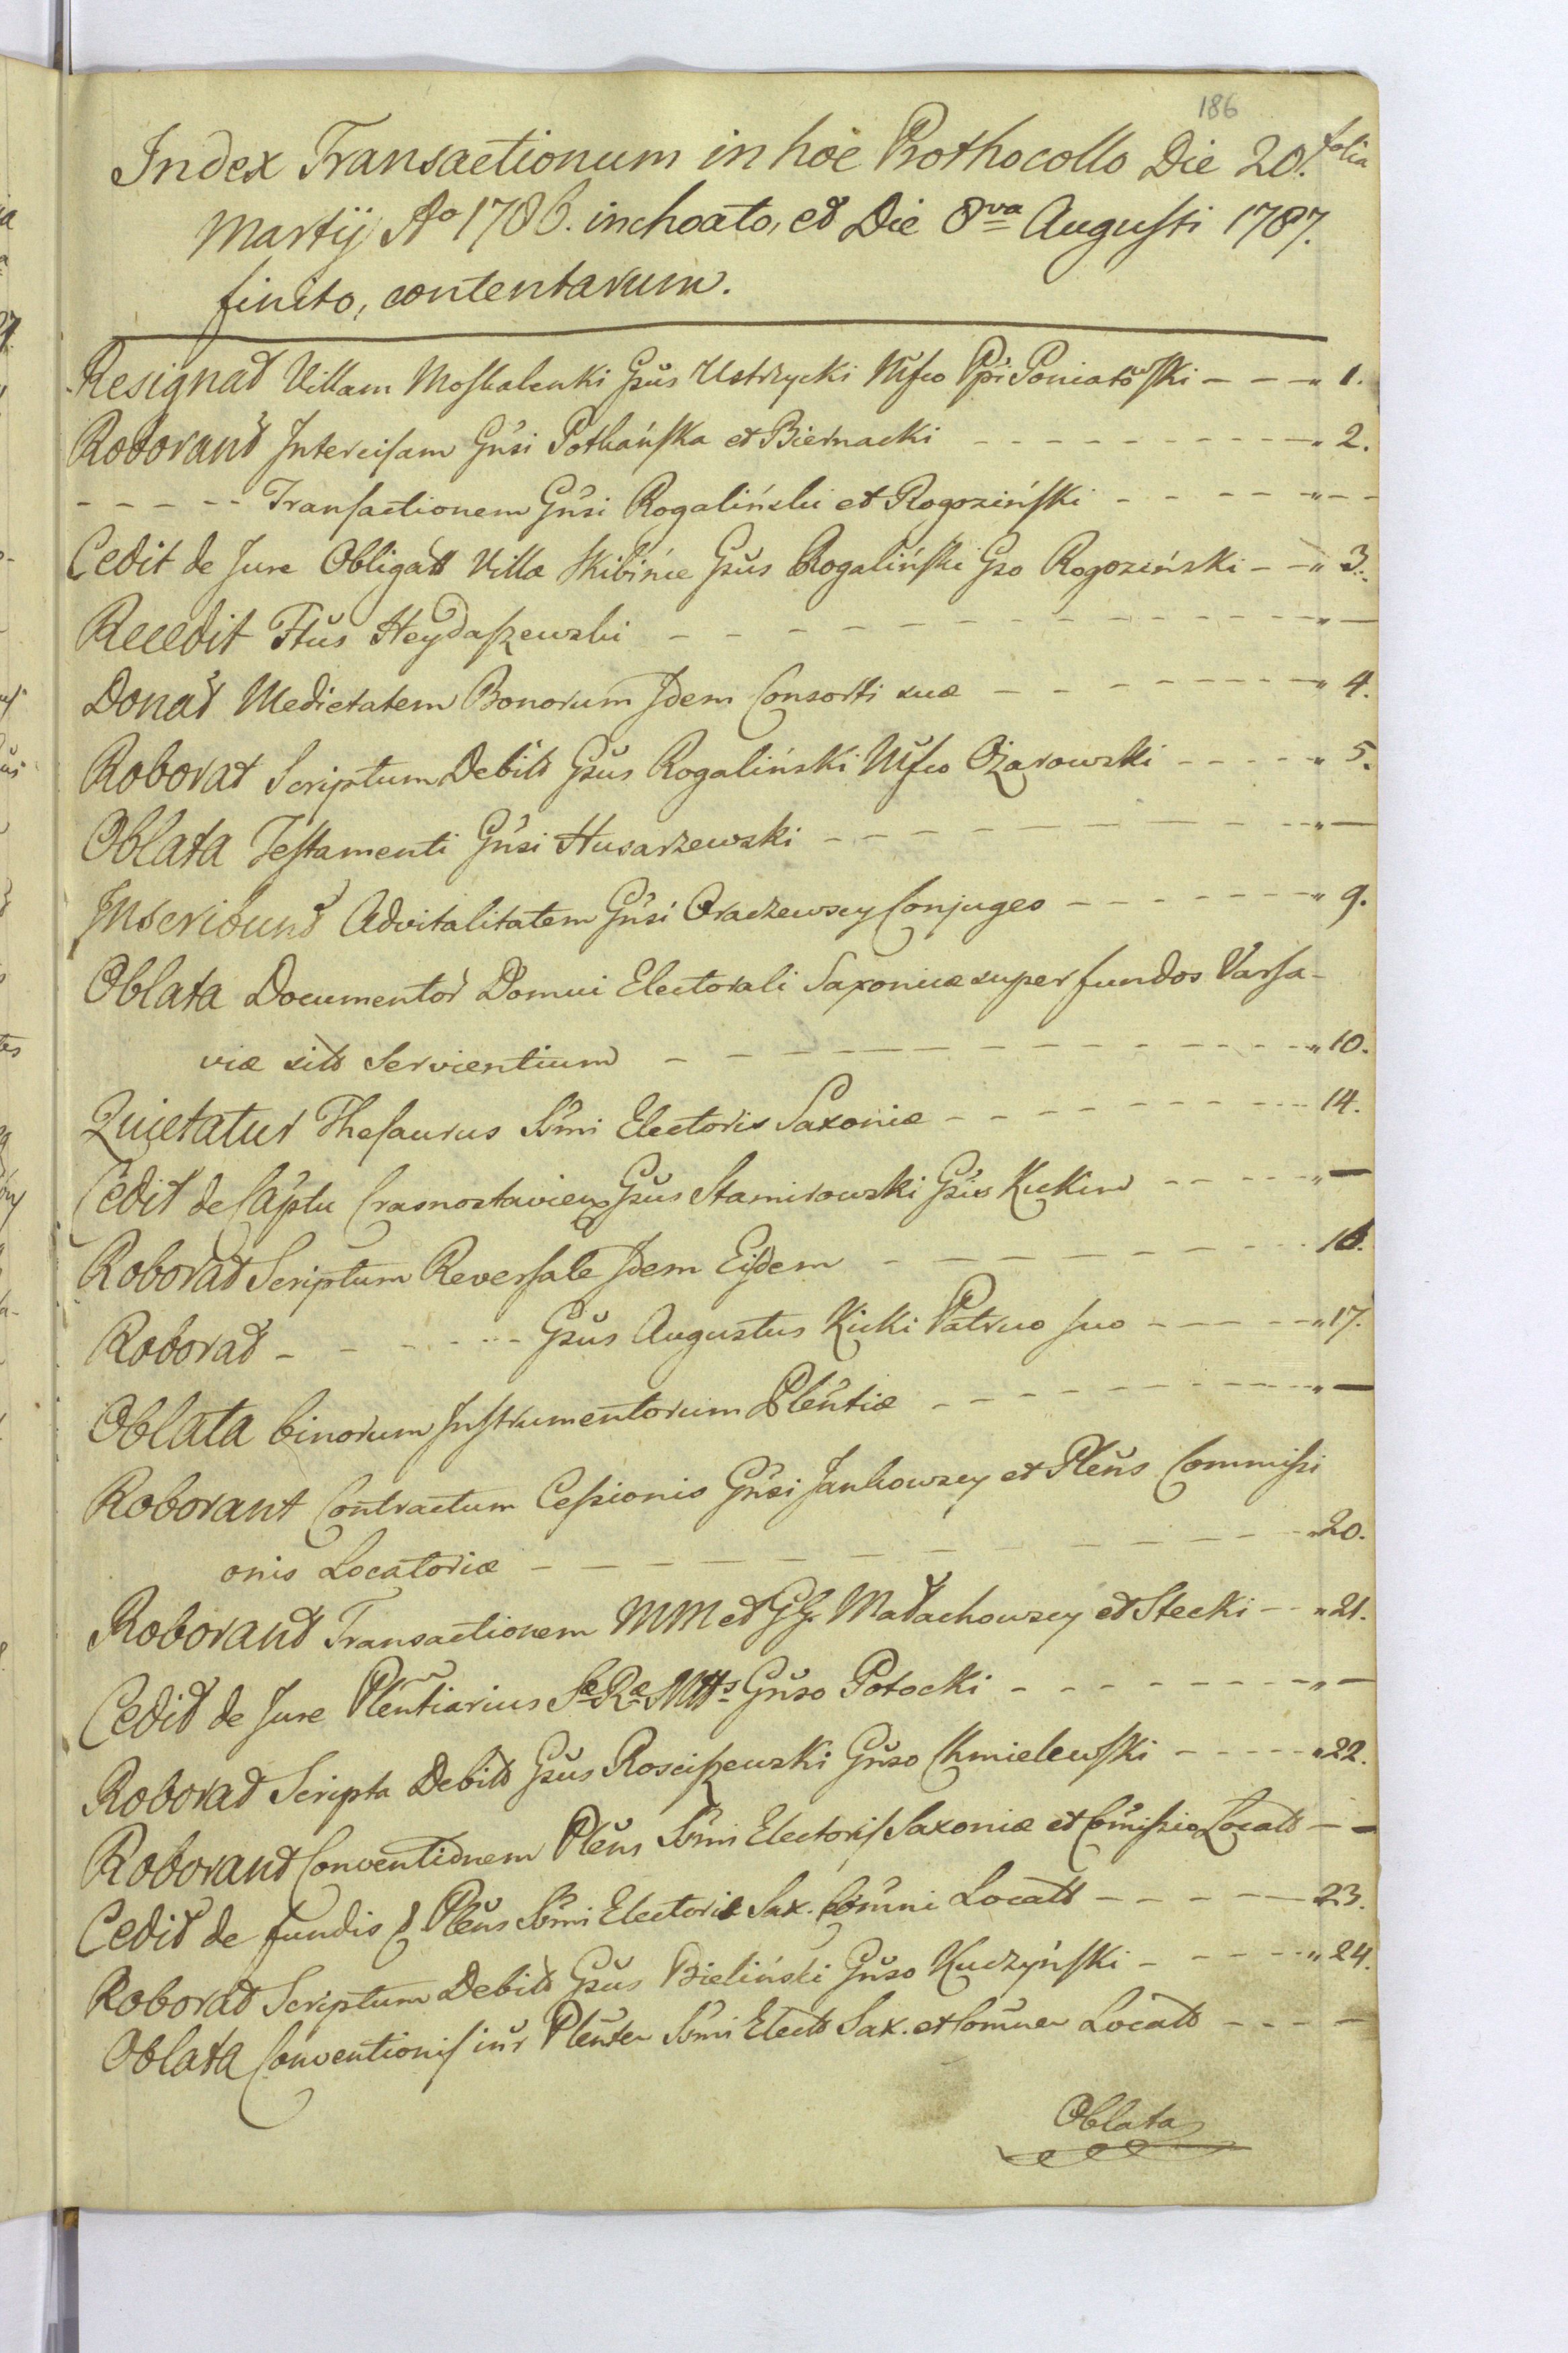 186
Index Transactionum in hoc Prothocollo Die 20. folia
Martij Ao 1786. inchoato, et Die 8va Augusti 1787.
finito, contentarum.
Resignat Villam Moskalenki Gsus Ustrzycki Mfco Ppi Poniatowski - - - " 1.
Roborant Intercisam Gnsi Potkańska et Biernacki - - - " 2.
- - - - - Transactionem Gnsi Rogaliński et Rogoziński - - - " - -
Cedit de Jure Obligatt Villæ Skibińce Gsus Rogaliński Gso Rogoziński - - " 3.
Recedit Ftus Heydaszewski - - - " -
Donat Medietatem Bonorum Idem Consorti suæ - - - " 4.
Roborat Scriptum Debiti Gsus Rogaliński Mfco Ożarowski - - - " 5.
Oblata Testamenti Gnsi Husarzewski - - - " -
Inscribunt Advitalitatem Gnsi Oraczewscy Conjuges - - - " 9.
Oblata Documentor Domui Electorali Saxonicæ super fundos Varsa-
viæ sitt Servientium - - - " 10.
Quietatur Thesaurus Smi Electoris Saxoniæ - - - 14.
Cedit de Captu Crasnostavien Gsus Stamirowski Gsis Kickim - - - " -
Roborat Scriptum Reversale Idem Eisdem - - - 16.
Roborat - - - - - Gsus Augustus Kicki Patruo suo - - - " 17.
Oblata binorum Instrumentorum Plentiæ - - - " -
Roborant Contractum Cessionis Gnsi Jankowscy et Plens Commissi
onis Locatoriæ - - - " 20.
Roborant Transactionem MM et GG Małachowscy et Stecki - - " 21.
Cedit de Jure Plentiarius Sæ Ræ Mttis Gnso Potocki - - - " -
Roborat Scripta Debiti Gsus Rosciszewski Gnso Chmielewski - - - " 22.
Roborant Conventionem Plens Smi Electoris Saxoniæ et Comissio Locatt - -
Cedit de fundis Plens Smi Electoris Sax. Comni Locatt - - - 23.
Roborat Scriptum Debiti Gsus Bieliński Gnso Kuczyński - - - " 24.
Oblata Conventionis intr Plenten Smi Elect Sax. et Comnen Locatt - - - -
Oblata